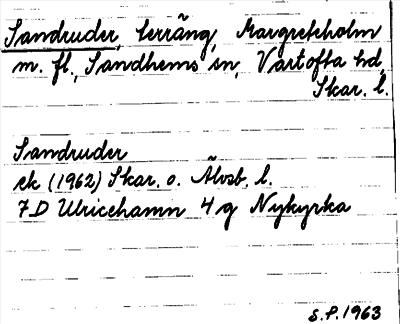 Sandruder, terräng, Margreteholm
m. fl., Sandhems sn, Vartofta hd,
Skar. l.
Sandruder
ek (1962) Skar. o. Älvsb. l.
7D Ulricehamn 4g Nykyrka
S.P. 1963